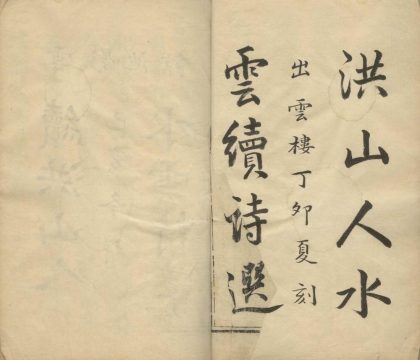 洪山人水
出雲樓丁卯夏刻
雲續詩選